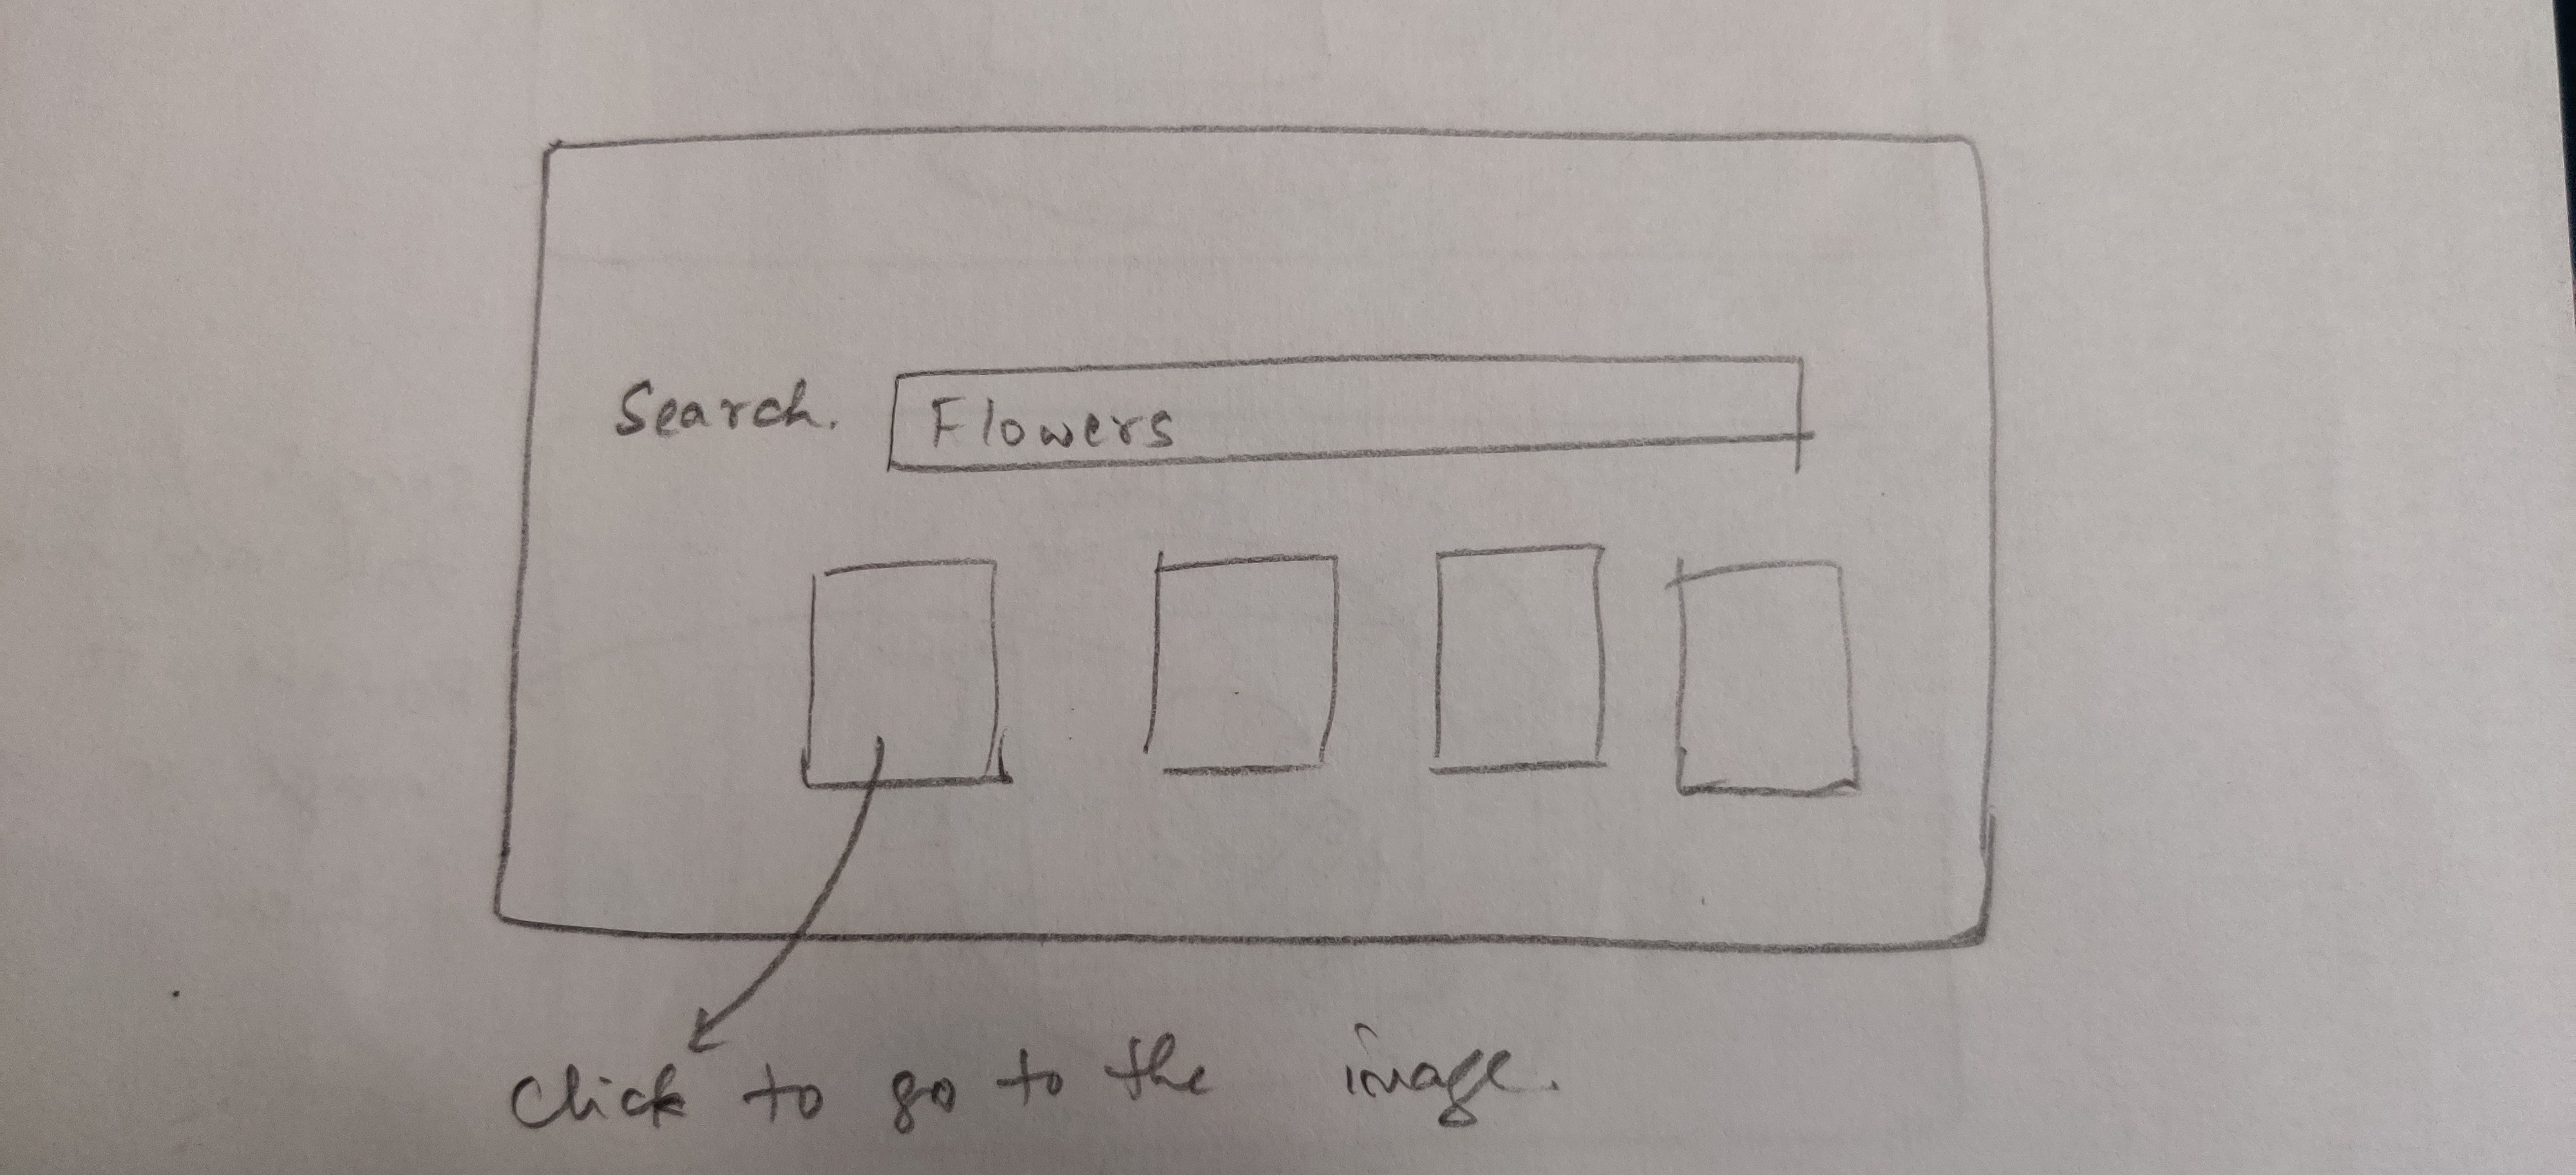 Search. Flowers
Click to go to the image.